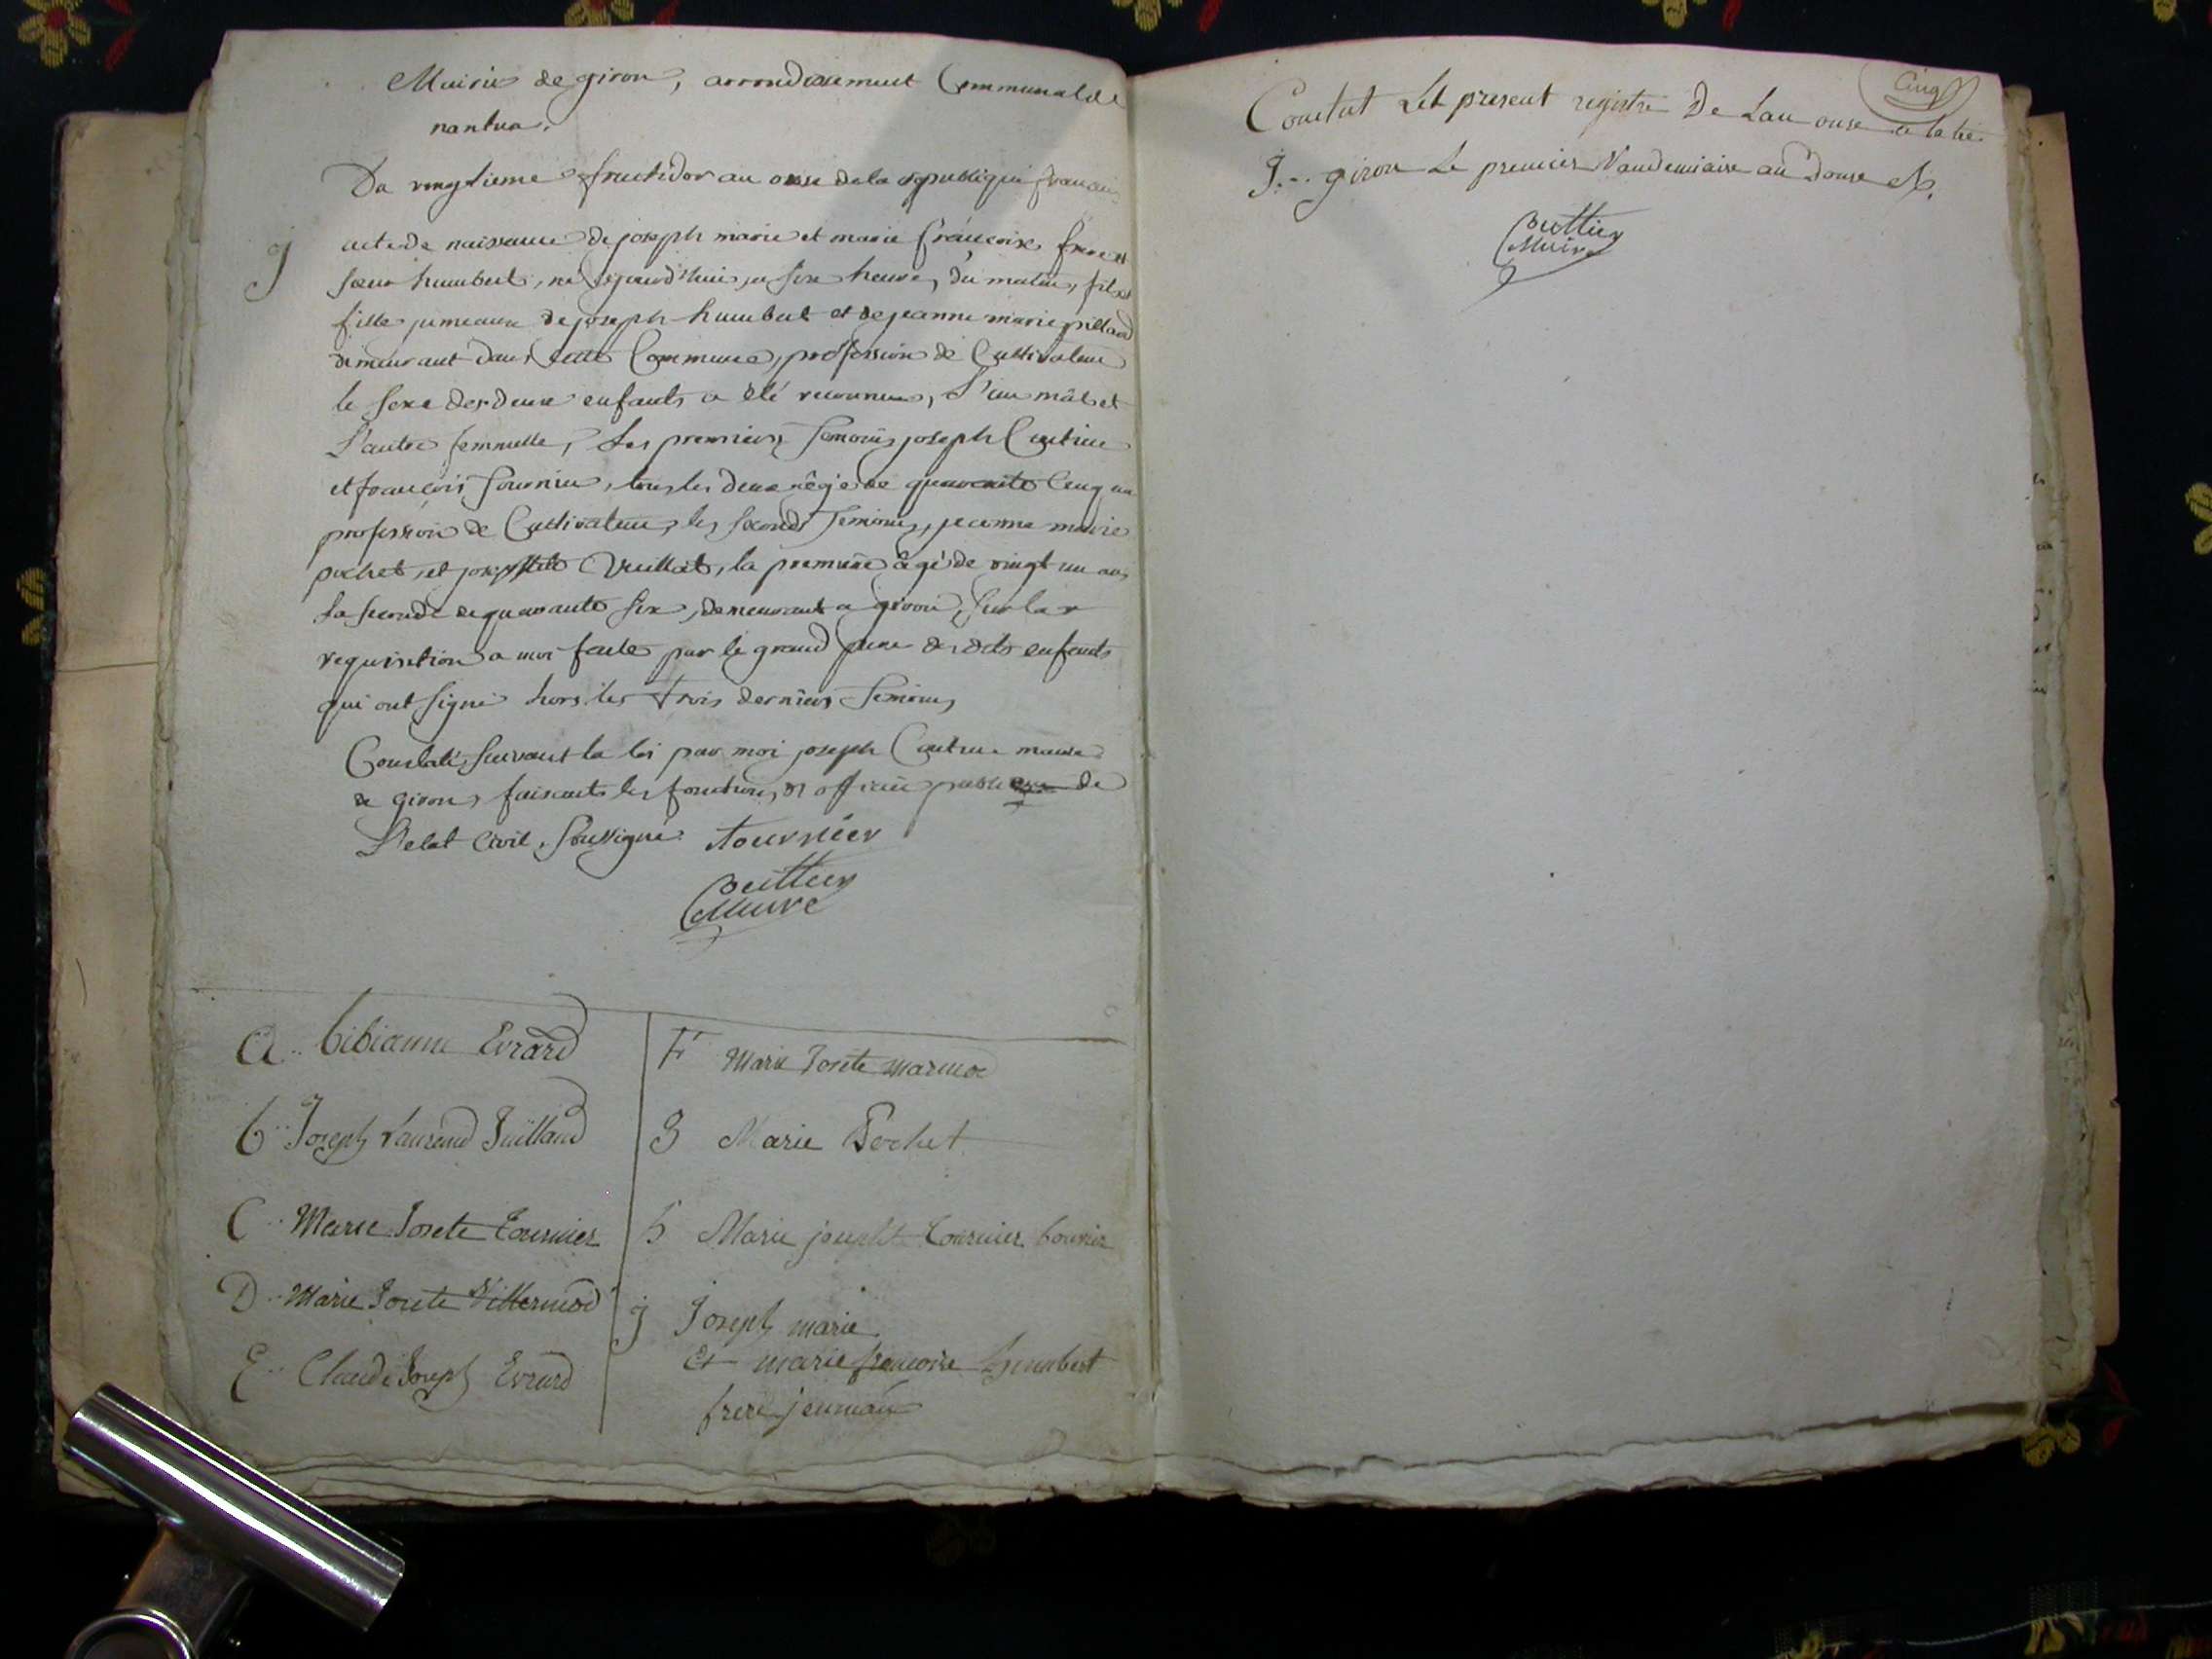 Mairie de giron, arrondissement Communal de
nantua.
Du vingtieme fructidor an onse de la republique francai
j acte de naissance de joseph marie et marie francoise frere et
soeur humbert, né ajourd'huie, a six heures du matin, fils et
fille jumeaux de joseph humbert et de jeanne marie
demeurant dans cette Commune, profession de Cultivateur
le sexe des deux enfants a été reconnu, l'un mâl et
L'autre femmelle, Les premiers temoins joseph
et francois tournier, tous les deux âgé de quarante Cinq an
profession de Cultivateur, les seconds temoins, jeanne marie
pochet, et josephte Vuillet, la premiere âgé de vingt un ans
la seconde de quarante six, demeurant a giron, sur la r
requisition a moi faite par le grand pere des dits enfants
qui ont signé hors les trois derniers temoins
Constaté, suivant la loi par moi joseph maire
de giron, faisants les fonctions d officier public de
L'etat Civil, soussigné. tournier
Couttier
Maire
A .. bibianne Evrard
b .. Joseph Laurend Juilland
C .. Marie Josete Tournier
D .. Marie Josete Villermod
E .. Claude Joseph Evrard
F Marie Josete marmod
g Marie Pochet
h Marie josephte tournier bouvier
j Joseph marie
et marie francoise humbert
frere jeumau
Cinq
Contat Let present registre De Lan onse a la lee.
J... giron Le premier Vandemiaire an Douse
Couttier
Maire